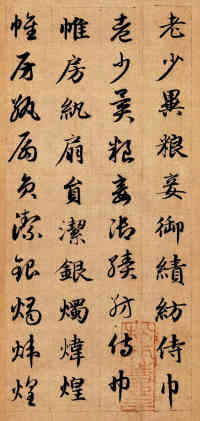 老少異粮妾御績紡侍巾
老少異粮妾御績紡侍巾
帷房紈扇員潔銀燭煒煌
帷房紈扇員潔銀燭煒煌